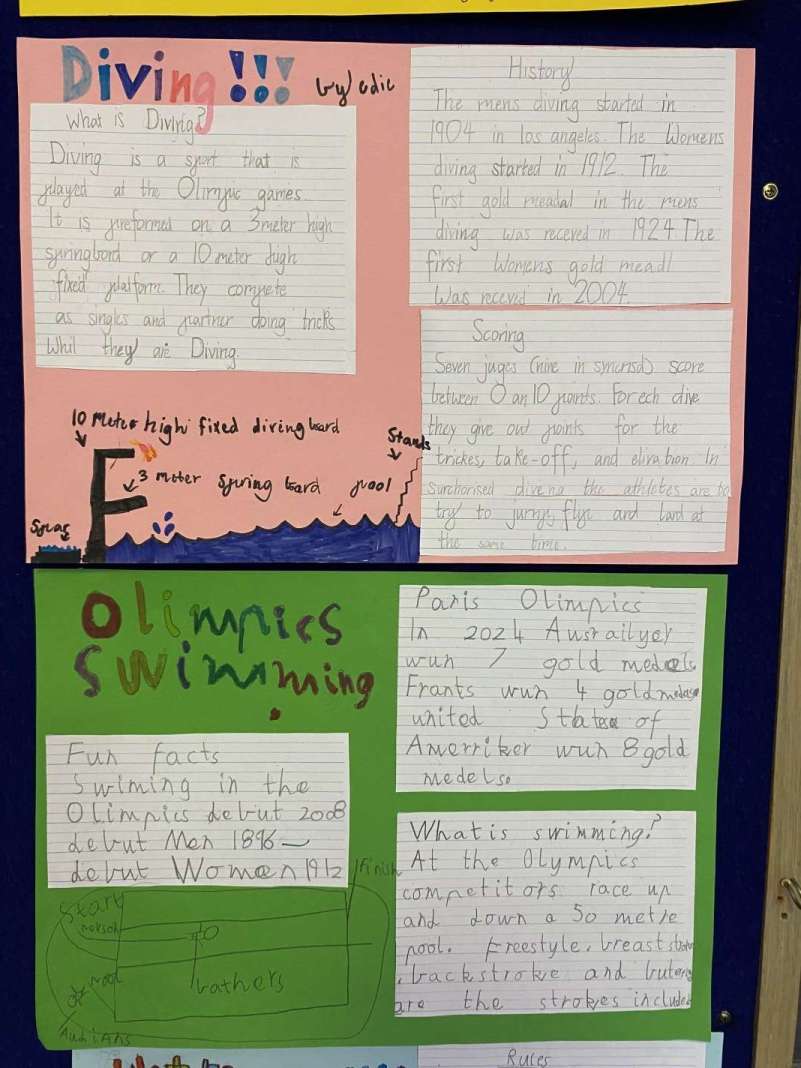 Diving!!! by edie
What is Diving?
Diving is a sport that is
played at the Olimpic games
It is preformed on a 3meter high
springbord or a 10 meter high
fixed platform. They compete
as singles and partner doing tricks
Whil they are Diving.
10 Meter high fixed diving bard
3 meter spring bard
pool
Stands
Spar
History
The mens diving started in
1904 in los angeles. The Womens
diving started in 1912. The
first gold meadal in the mens
diving was receved in 1924. The
first Womens gold meadl
Was receved in 2004.
Scoring
Seven juges (nine in) score
between 0 an 10 points. For ech dive
they give out points for the
trickes, take-off, and In
the athletes are to
try to jump, and land at
the same time.
Olimpics
Swimming
Fun facts
Swiming in the
Olimpics debut 2008
debut Men 1896
debut Women 1912
Start
finish
person
pool
bathers
Paris Olimpics
In 2024 Ausrailyer
wun 7 gold medels
Frants wun 4 gold
united States of
Amerriker wun 8 gold
medels.
What is swimming?
At the Olympics
competitors race up
and down a 50 metre
pool. Freestyle, breast
, backstroke and
are the strokes included
Rules